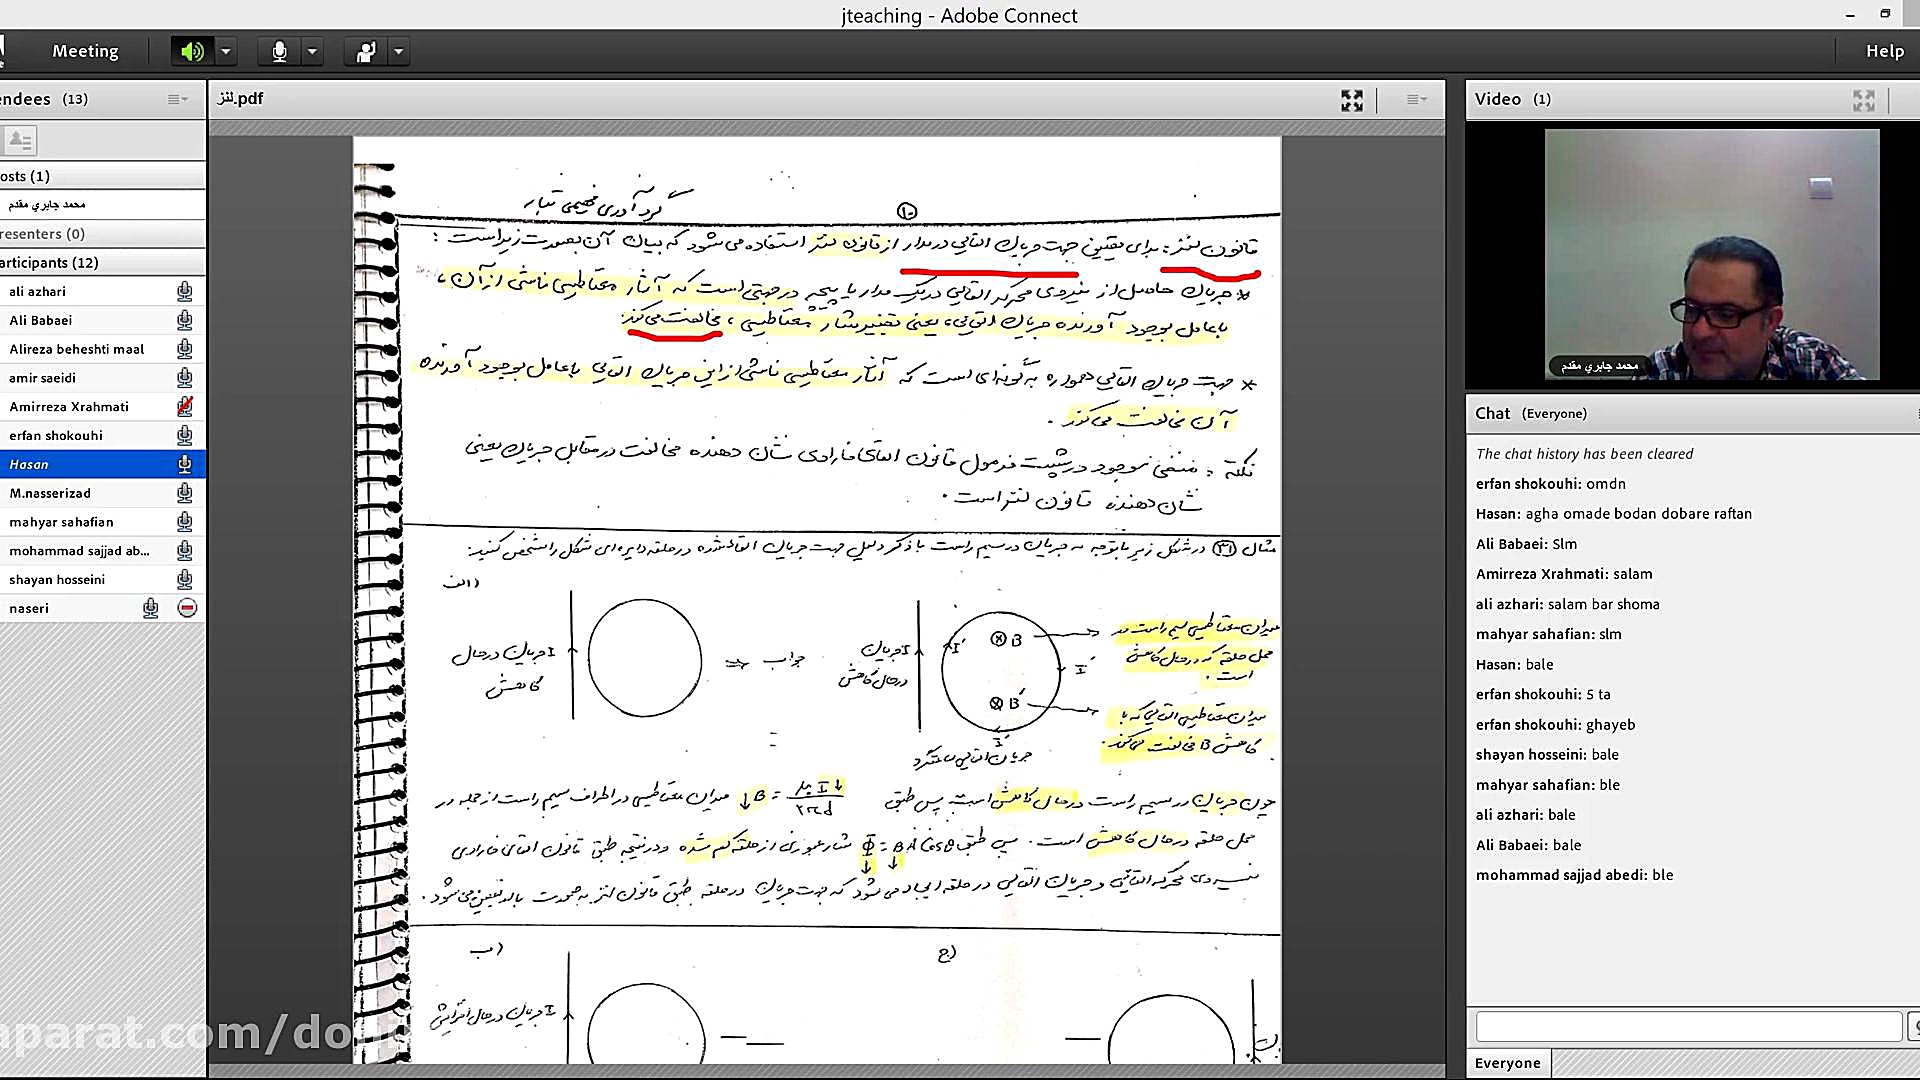 jteaching - Adobe Connect
Meeting
Help
endees (13)
osts (1)
محمد جابري مقدم
resenters (0)
articipants (12)
ali azhari
Ali Babaei
Alireza beheshti maal
amir saeidi
Amirreza Xrahmati
erfan shokouhi
Hasan
M.nasserizad
mahyar sahafian
mohammad sajjad ab...
shayan hosseini
naseri
لنز.pdf
گردآوری فهیمی تبار
۱۰
قانون لنز: برای تعیین جهت جریان القایی در مدار از قانون لنز استفاده می شود که بیان آن بصورت زیر است:
* جریان حاصل از نیروی محرکه القایی در یک مدار یا پیچه در جهتی است که آثار مغناطیسی ناشی از آن،
با عامل بوجود آورنده جریان القایی، یعنی تغییر شار مغناطیسی، مخالفت می کند.
* جهت جریان القایی همواره به گونه ای است که آثار مغناطیسی ناشی از این جریان القایی با عامل بوجود آورنده
آن مخالفت می کند.
نکته: منفی موجود در پشت فرمول قانون القای فارادی نشان دهنده مخالفت در مقابل جریان یعنی
نشان دهنده قانون لنز است.
مثال ۳۱ در شکل زیر با توجه به جریان در سیم راست با ذکر دلیل جهت جریان القا شده در حلقه دایره ای شکل را مشخص کنید:
الف)
I جریان در حال
کاهش
جواب
I جریان
در حال کاهش
B
I'
I'
B'
I'
جریان القایی ساعتگرد
میدان مغناطیسی سیم راست در
محل حلقه که در حال کاهش
است.
میدان مغناطیسی القایی که با
کاهش B مخالفت می کند.
چون جریان در سیم راست در حال کاهش است پس طبق ↓B = μ₀I↓ / ۲πd میدان مغناطیسی در اطراف سیم راست از جمله در
محل حلقه در حال کاهش است. پس طبق Φ = BA cosθ شار عبوری از حلقه کم شده و در نتیجه طبق قانون القای فارادی
نیروی محرکه القایی و جریان القایی در حلقه ایجاد می شود که جهت جریان در حلقه طبق قانون لنز به صورت بالا تعیین می شود.
ب)
ج)
I جریان در حال افزایش
Video (1)
محمد جابري مقدم
Chat (Everyone)
The chat history has been cleared
erfan shokouhi: omdn
Hasan: agha omade bodan dobare raftan
Ali Babaei: Slm
Amirreza Xrahmati: salam
ali azhari: salam bar shoma
mahyar sahafian: slm
Hasan: bale
erfan shokouhi: 5 ta
erfan shokouhi: ghayeb
shayan hosseini: bale
mahyar sahafian: ble
ali azhari: bale
Ali Babaei: bale
mohammad sajjad abedi: ble
Everyone